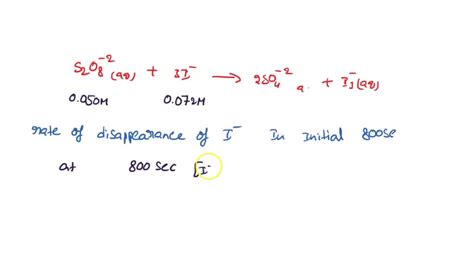 S₂O₈⁻² (aq) + 3I⁻ → 2SO₄⁻² a. + I₃⁻(aq)
0.050M 0.072M
rate of disappearance of I⁻ In initial 800se
at 800 sec [I⁻